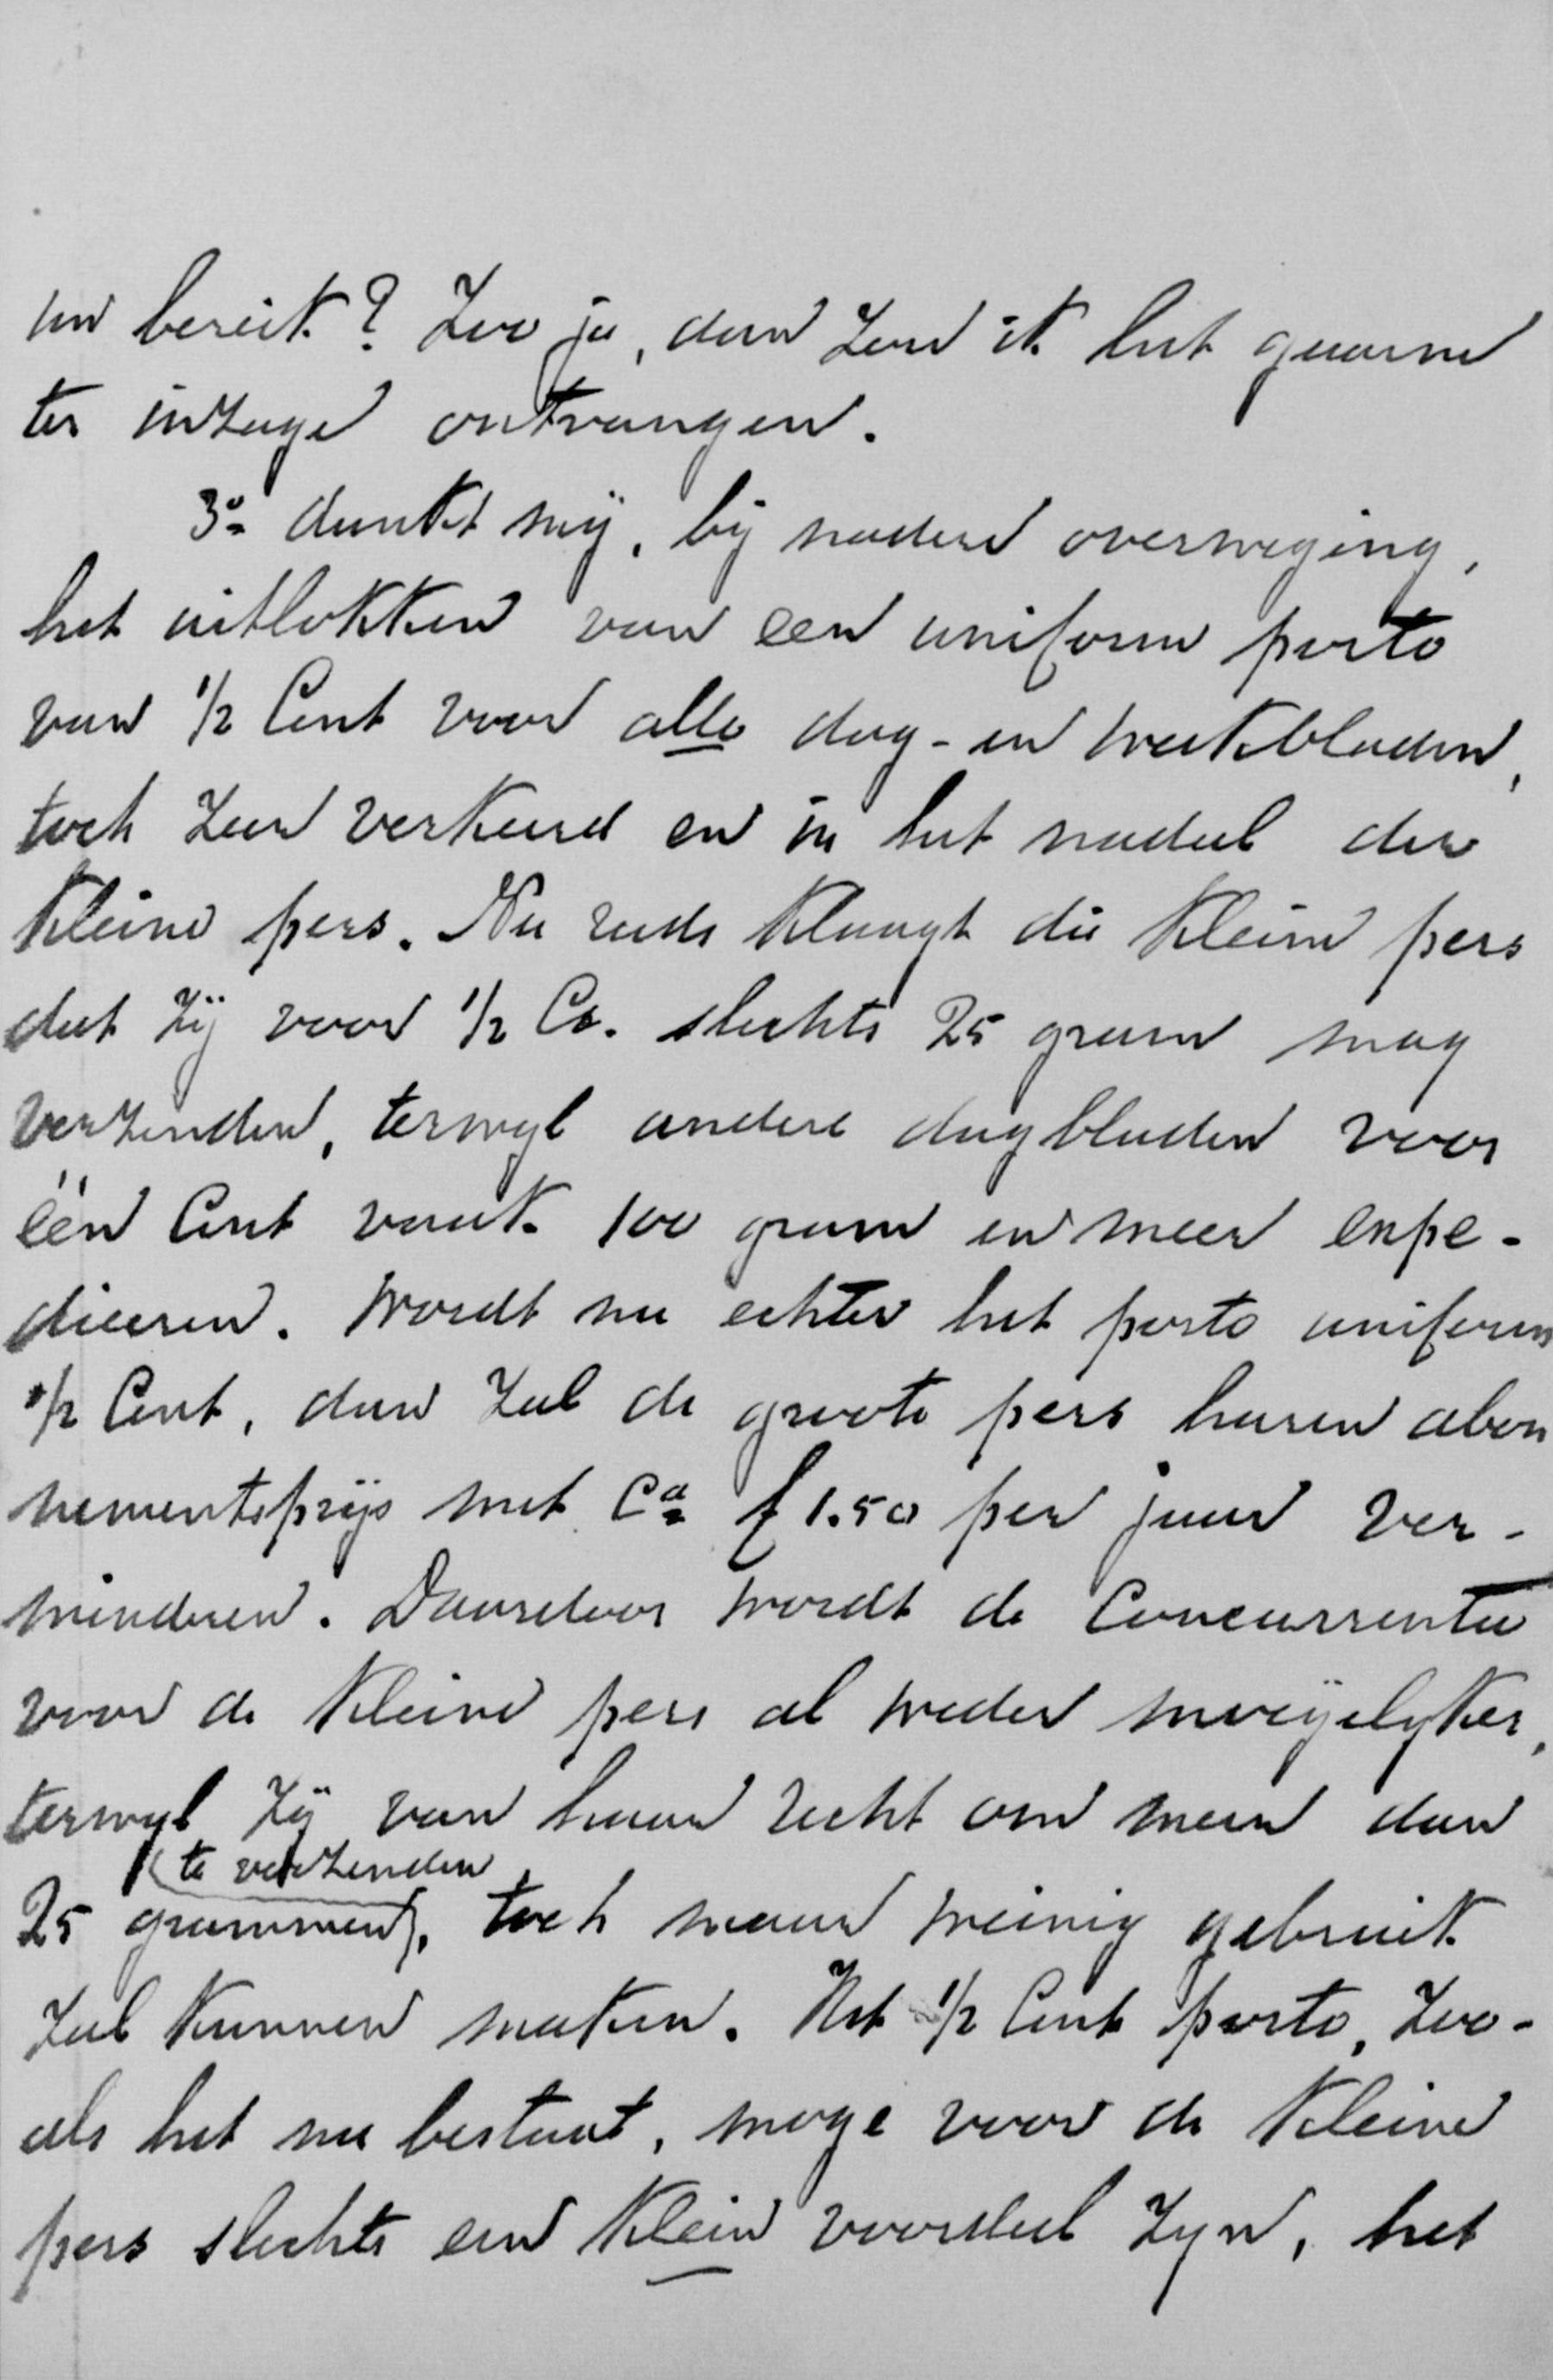 uw bereik? Zoo ja, dan zou ik het gaarne
ter inzage ontvangen.
3º dunkt mij, bij nadere overweging,
het uitlokken van een uniform porto
van 1/2 Cent voor alle dag- en weekbladen,
toch zeer verkeerd en in het nadeel der
kleine pers. Nu reeds klaagt die kleine pers
dat zij voor 1/2 Ct. slechts 25 gram mag
verzenden, terwyl andere dagbladen voor
één Cent vaak 100 gram en meer expe-
dieeren. Wordt nu echter het porto uniform
1/2 Cent, dan zal de groote pers haren abon
nementsprijs met Ca f 1.50 per jaar ver-
minderen. Daardoor wordt de Concurrentie
voor de kleine pers al weder moeijelyker,
terwyl zij van haar recht om meer dan
te verzenden
25 grammen, toch maar weinig gebruik
zal kunnen maken. Het 1/2 Cent porto, zoo-
als het nu bestaat, moge voor de kleine
pers slechts een klein voordeel zyn, het